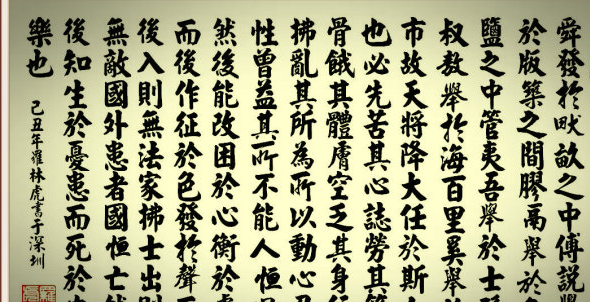 舜發於畎畝之中傅說舉
於版築之間膠鬲舉於
鹽之中管夷吾舉於士
叔敖舉於海百里奚舉
市故天將降大任於斯
也必先苦其心誌勞其
骨餓其體膚空乏其身行
拂亂其所為所以動心
性曾益其所不能人恒
然後能改困於心衡於
而後作征於色發於聲
後入則無法家拂士出則
無敵國外患者國恒亡然
後知生於憂患而死於
樂也
己丑年羅林虎書于深圳